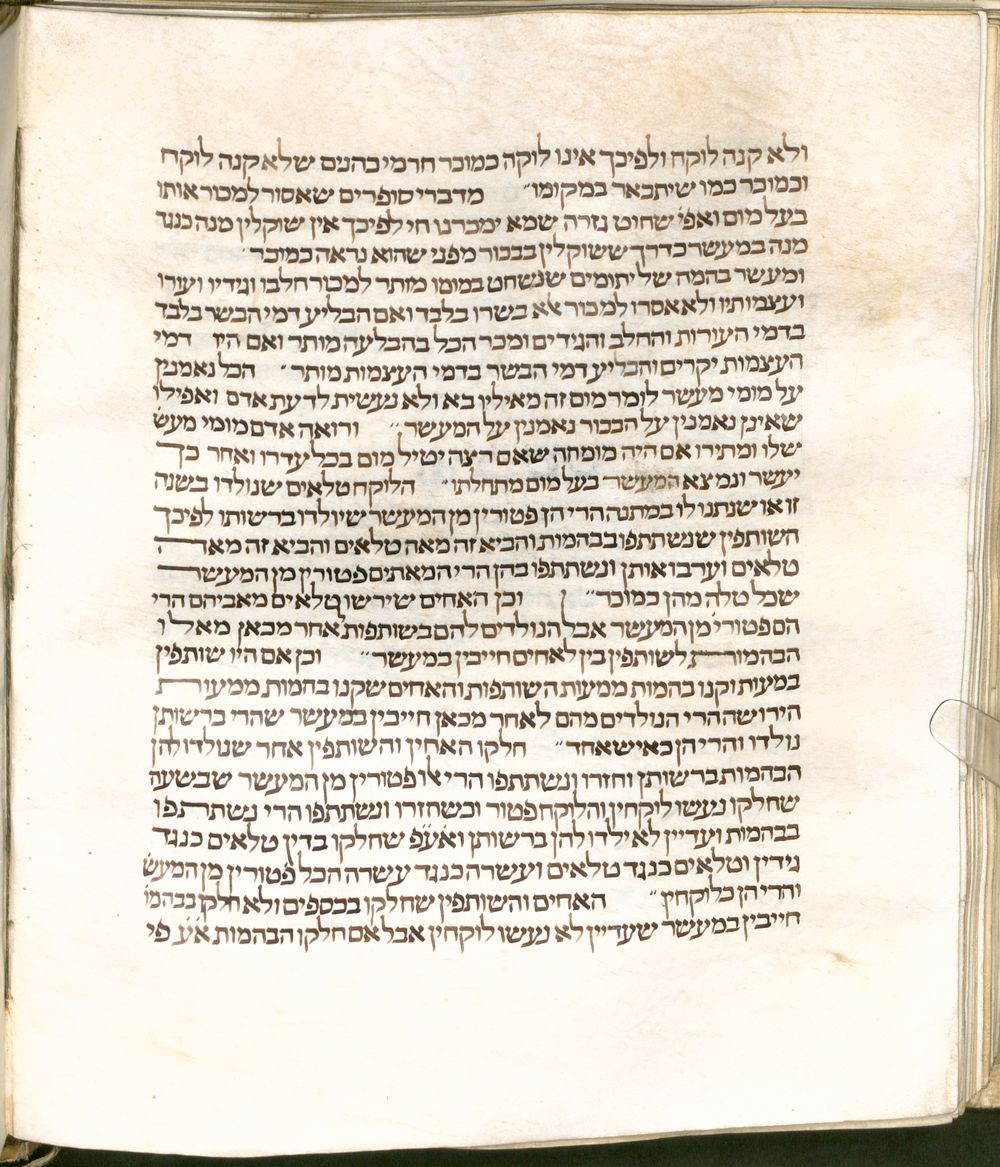 ולא קנה לוקח ולפיכך אינו לוקה כמוכר חרמי כהנים שלא קנה לוקח
וכמוכר כמו שיתבאר במקומו״ מדברי סופרים שאסור למכור אותו
בעל מום ואפי׳ שחוט גזרה שמא ימכרנו חי לפיכך אין שוקלין מנה כנגד
מנה במעשר כדרך ששוקלין בבכור מפני שהוא נראה כמוכר
ומעשר בהמה של יתומים שנשחט במומו מותר למכור חלבו וגידיו ועורו
ועצמותיו ולא אסרו למכור אלא בשרו בלבד ואם הבליע דמי הבשר בלבד
בדמי העורות והחלב והגידים ומכר הכל בהבלעה מותר ואם היו דמי
העצמות יקרים והבליע דמי הבשר בדמי העצמות מותר׳ הכל נאמנין
על מומי מעשר לומר מום זה מאיליו בא ולא נעשית לדעת אדם ואפילו
שאינן נאמנין על הבכור נאמנין על המעשר״ ורואה אדם מומי מעש׳
שלו ומתירו אם היה מומחה שאם רצה יטיל מום בכל עדרו ואחר כך
יעשר ונמצא המעשר בעל מום מתחלתו״ הלוקח טלאים שנולדו בשנה
זו או שנתנו לו במתנה הרי הן פטורין מן המעשר שיולדו ברשותו לפיכך
השותפין שנשתתפו בבהמות והביא זה מאה טלאים והביא זה מאה
טלאים וערבו אותן ונשתתפו בהן הרי המאתים פטורין מן המעשר
שכל טלה מהן כמוכר״ וכן האחים שירשו טלאים מאביהם הרי
הם פטורי׳ מן המעשר אבל הנולדים להם בשותפות לאחר מכאן מאלו
הבהמות לשותפין בין לאחים חייבין במעשר״ וכן אם היו שותפין
במעות וקנו בהמות ממעות השותפות והאחים שקנו בהמות ממעות
הירושה הרי הנולדים מהם לאחר מכאן חייבין במעשר שהרי ברשותן
נולדו והרי הן כאיש אחד״ חלקו האחין והשותפין אחר שנולדו להן
הבהמות ברשותן וחזרו ונשתתפו הרי אלו פטורין מן המעשר שבשעה
שחלקו נעשו לוקחין והלוקח פטור וכשחזרו ונשתתפו הרי נשתתפו
בבהמות ועדיין לא ילדו להן ברשותן ואע״פ שחלקו בדין טלאים כנגד
גידין וטלאים כנגד טלאים ועשרה כנגד עשרה הכל פטורין מן המעש׳
והרי הן כלוקחין״ האחים והשותפין שחלקו בכספים ולא חלקו בבהמו׳
חייבין במעשר שעדיין לא נעשו לוקחין אבל אם חלקו הבהמות אע׳ פי